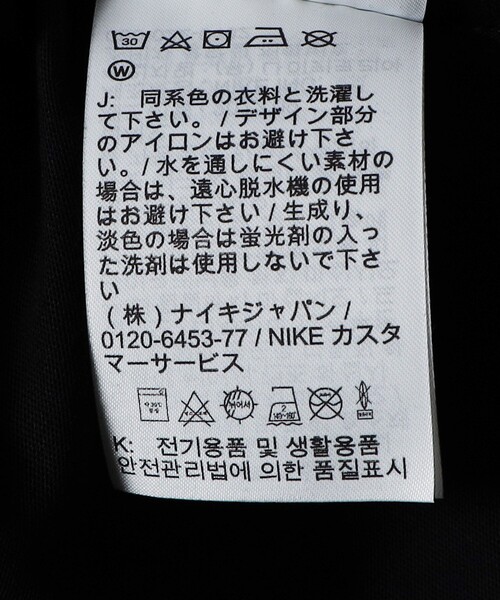 30
W
J: 同系色の衣料と洗濯し
て下さい。/ デザイン部分
のアイロンはお避け下さ
い。/ 水を通しにくい素材の
場合は、遠心脱水機の使用
はお避け下さい / 生成り、
淡色の場合は蛍光剤の入っ
た洗剤は使用しないで下さ
い
(株) ナイキジャパン /
0120-6453-77 / NIKE カスタ
マーサービス
K: 전기용품 및 생활용품
안전관리법에 의한 품질표시